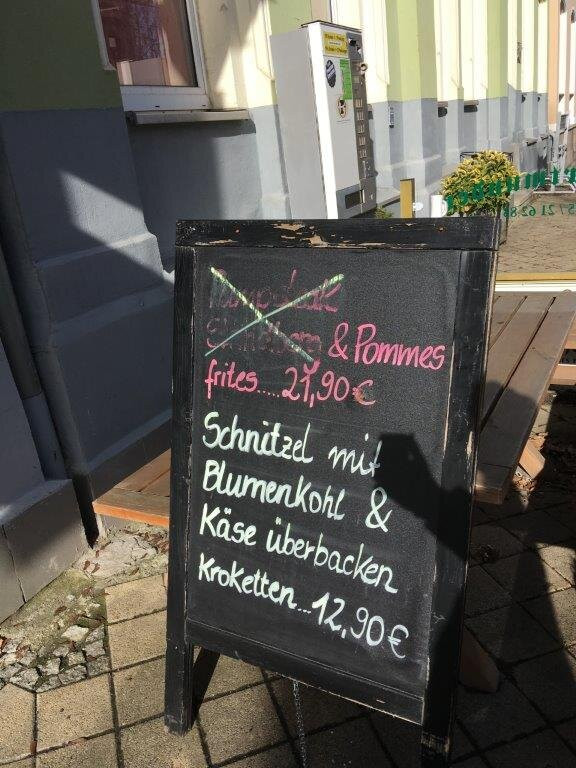 Rumpsteak
& Pommes
frites.....21,90€
Schnitzel mit
Blumenkohl &
Käse überbacken
Kroketten...12,90€